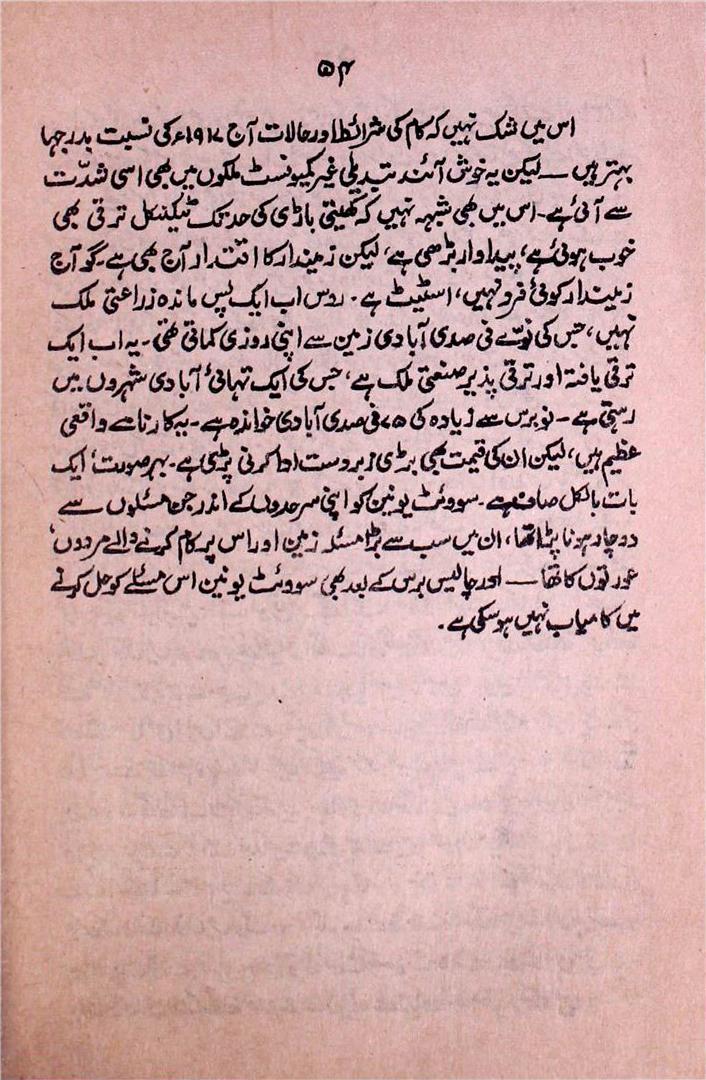 ۵۴
اس میں شک نہیں کہ کام کی شرائط اور حالات آج ۱۹۱۷ء کی نسبت بدرجہا
بہتر ہیں — لیکن یہ خوش آئند تبدیلی غیر کمیونسٹ ملکوں میں بھی اسی شدّت
سے آئی ہے۔ اس میں بھی شبہہ نہیں کہ کھیتی باڑی کی حد تک ٹیکنیکل ترقی بھی
خوب ہوئی ہے، پیداوار بڑھی ہے، لیکن زمیندار کا اقتدار آج بھی ہے۔ گو آج
زمیندار کوئی فرد نہیں، اسٹیٹ ہے۔ روس اب ایک پس ماندہ زراعتی ملک
نہیں، جس کی نوّے فی صدی آبادی زمین سے اپنی روزی کماتی تھی۔ یہ اب ایک
ترقی یافتہ اور ترقی پذیر صنعتی ملک ہے، جس کی ایک تہائی آبادی شہروں میں
رہتی ہے۔ نو برس سے زیادہ کی ۷۵ فی صدی آبادی خواندہ ہے۔ یہ کارنامے واقعی
عظیم ہیں، لیکن ان کی قیمت بھی بڑی زبردست ادا کرنی پڑی ہے۔ بہر صورت، ایک
بات بالکل صاف ہے۔ سووئٹ یونین کو اپنی سرحدوں کے اندر جن مسئلوں سے
دوچار ہونا پڑا تھا، ان میں سب سے بڑا مسئلہ زمین اور اس پر کام کرنے والے مردوں،
عورتوں کا تھا — اور چالیس برس کے بعد بھی سووئٹ یونین اس مسئلے کو حل کرنے
میں کامیاب نہیں ہو سکی ہے۔